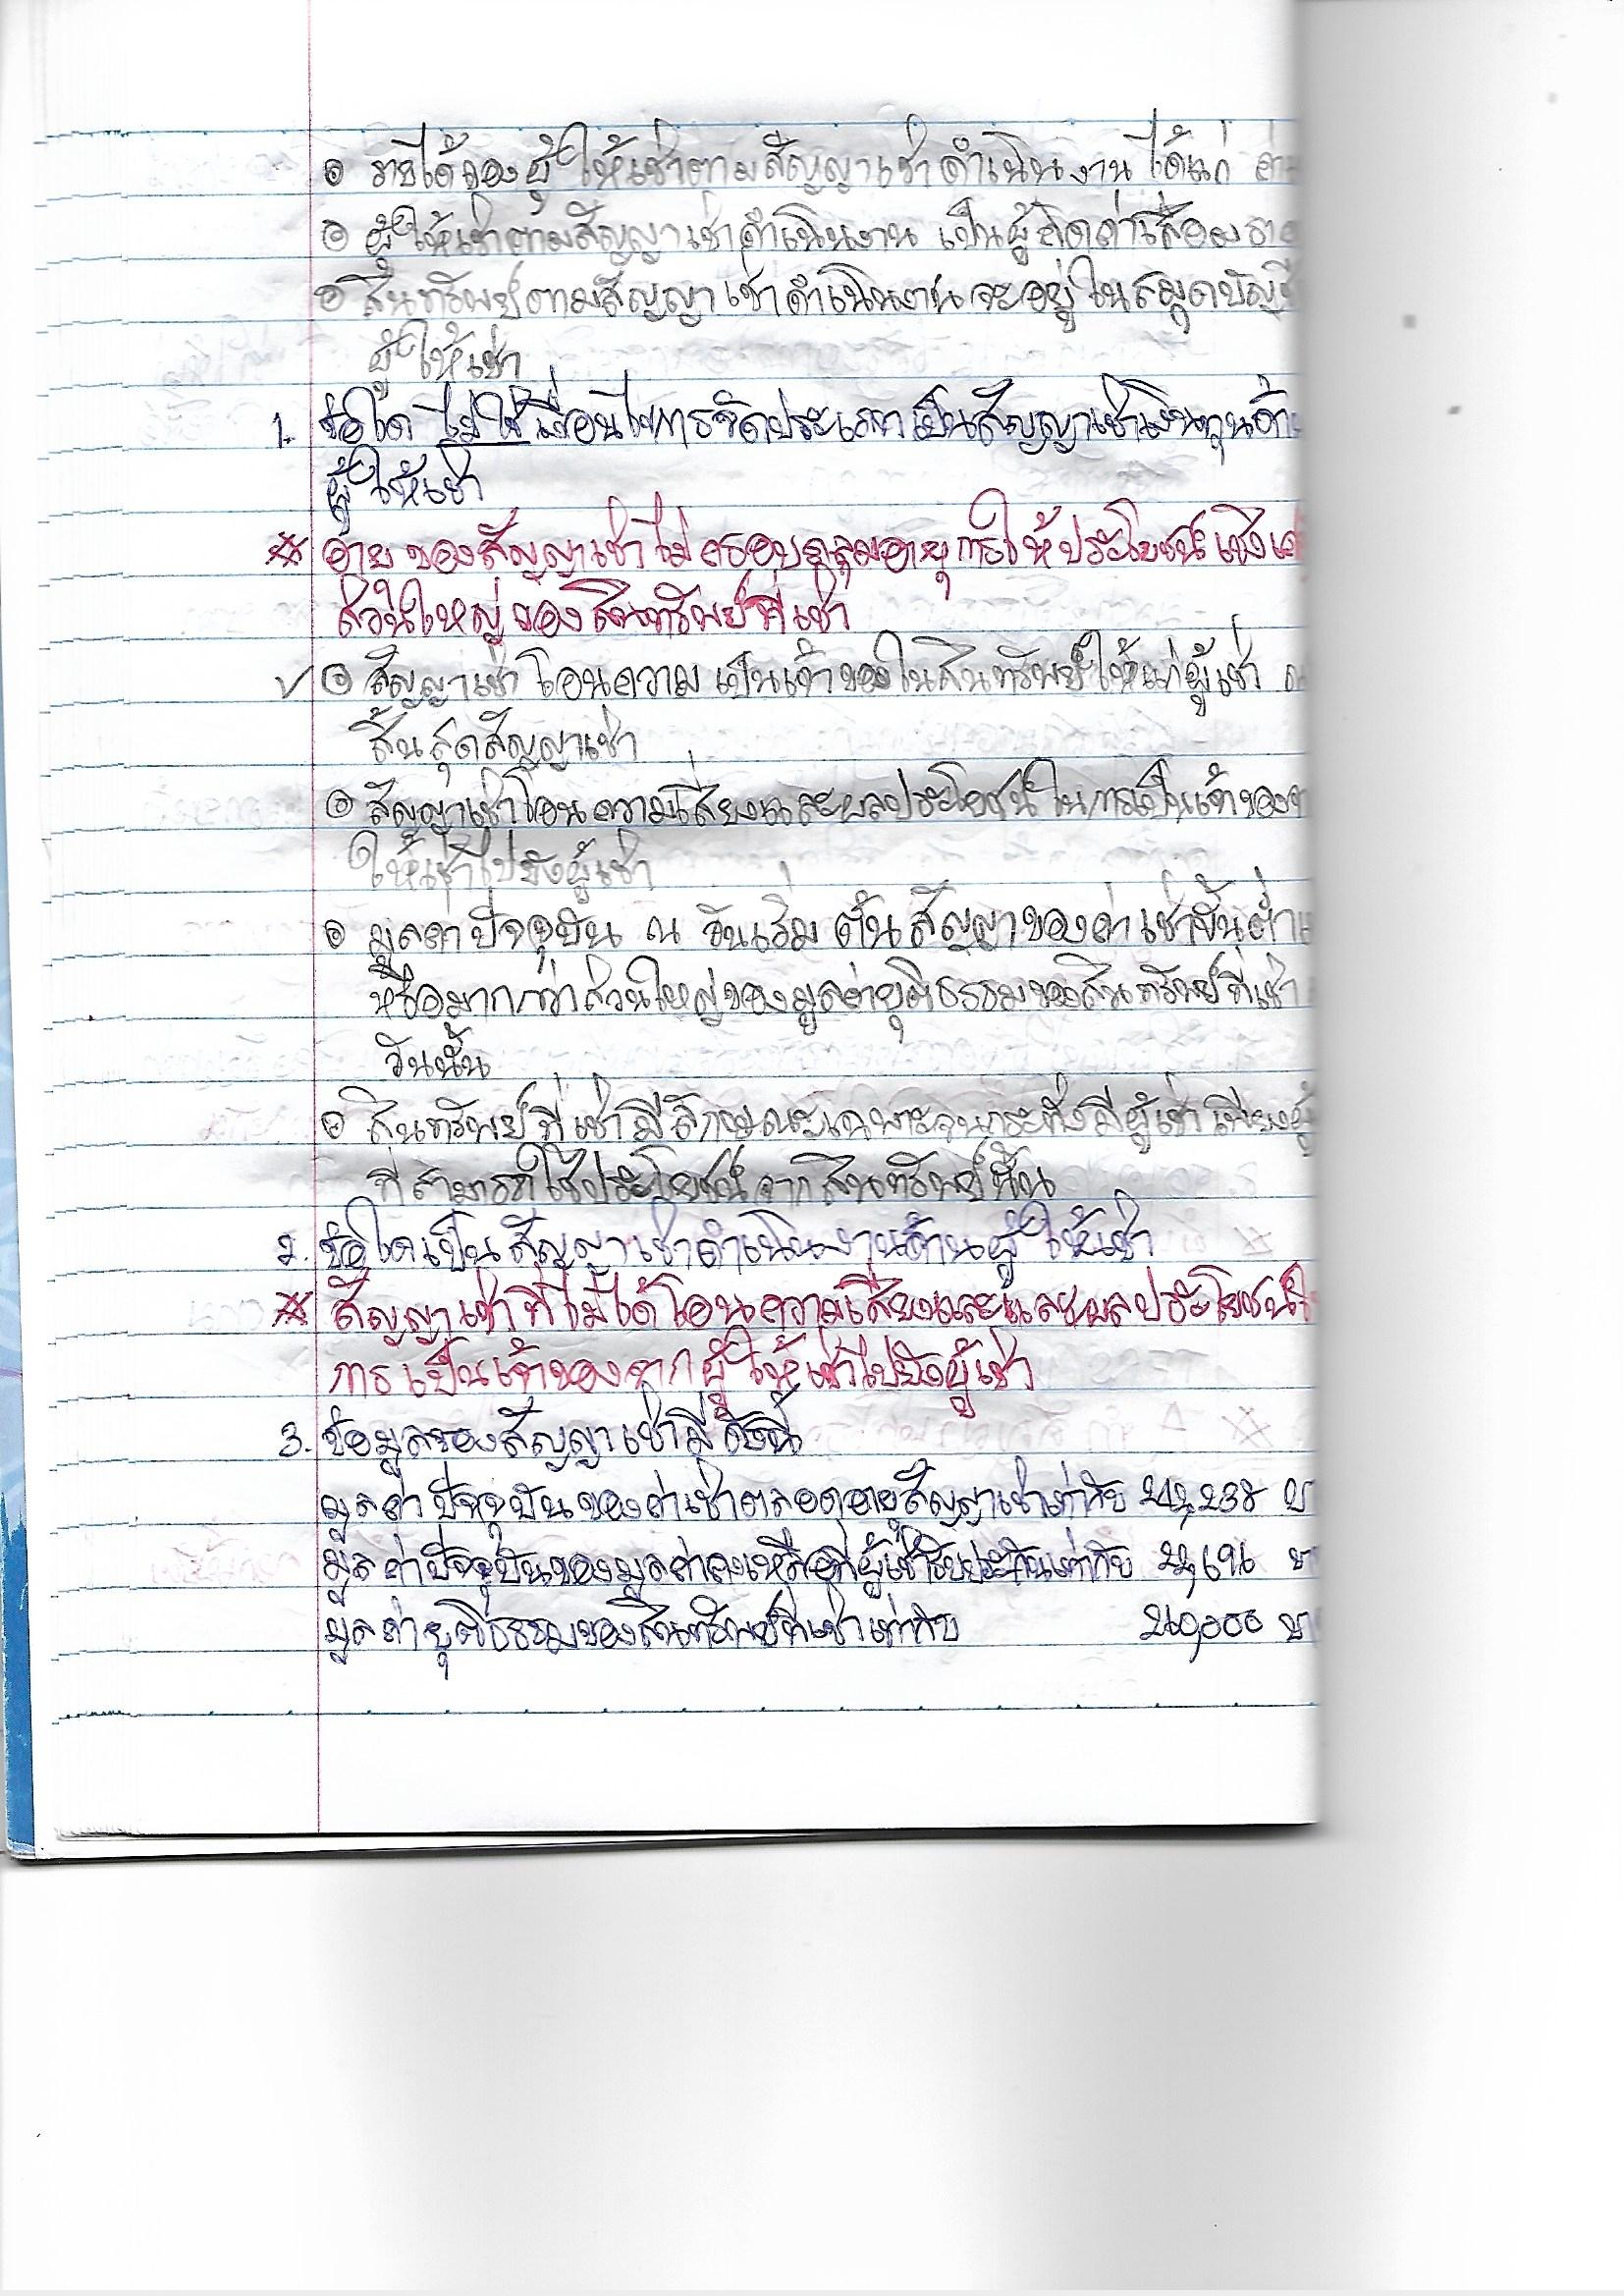 ๏ รายได้ของผู้ให้เช่าตามสัญญาเช่าดำเนินงาน ได้แก่
๏ ผู้ให้เช่าตามสัญญาเช่าดำเนินงาน เป็นผู้คิดค่าเสื่อมรา
๏ สินทรัพย์ตามสัญญาเช่าดำเนินงาน จะอยู่ในสมุดบัญชี
ผู้ให้เช่า
1. ข้อใด ไม่ใช่ เงื่อนไขการจัดประเภทเป็นสัญญาเช่าเงินทุนด้า
ผู้ให้เช่า
อายุของสัญญาเช่าไม่ครอบคลุมอายุการให้ประโยชน์เชิง
ส่วนใหญ่ของสินทรัพย์ที่เช่า
✓ ๏ สัญญาเช่าโอนความเป็นเจ้าของในสินทรัพย์ให้แก่ผู้เช่า
สิ้นสุดสัญญาเช่า
๏ สัญญาเช่าโอนความเสี่ยงและผลประโยชน์ในการเป็นเจ้าของ
ให้เช่าไปยังผู้เช่า
๏ มูลค่าปัจจุบัน ณ วันเริ่มต้นสัญญาของค่าเช่าขั้นต่ำ
หรือมากกว่าส่วนใหญ่ของมูลค่ายุติธรรมของสินทรัพย์ที่เช่า
วันนั้น
๏ สินทรัพย์ที่เช่ามีลักษณะเฉพาะจนกระทั่งมีผู้เช่าเพียงผู้
ที่สามารถใช้ประโยชน์จากสินทรัพย์นั้น
2. ข้อใดเป็นสัญญาเช่าดำเนินงานด้านผู้ให้เช่า
สัญญาเช่าที่ไม่ได้โอนความเสี่ยงและและผลประโยชน์ใ
การเป็นเจ้าของจากผู้ให้เช่าไปยังผู้เช่า
3. ข้อมูลของสัญญาเช่ามีดังนี้
มูลค่าปัจจุบันของค่าเช่าตลอดอายุสัญญาเช่าเท่ากับ
มูลค่าปัจจุบันของมูลค่าคงเหลือที่ผู้เช่ารับประกันเท่ากับ
มูลค่ายุติธรรมของสินทรัพย์ที่เช่าเท่ากับ